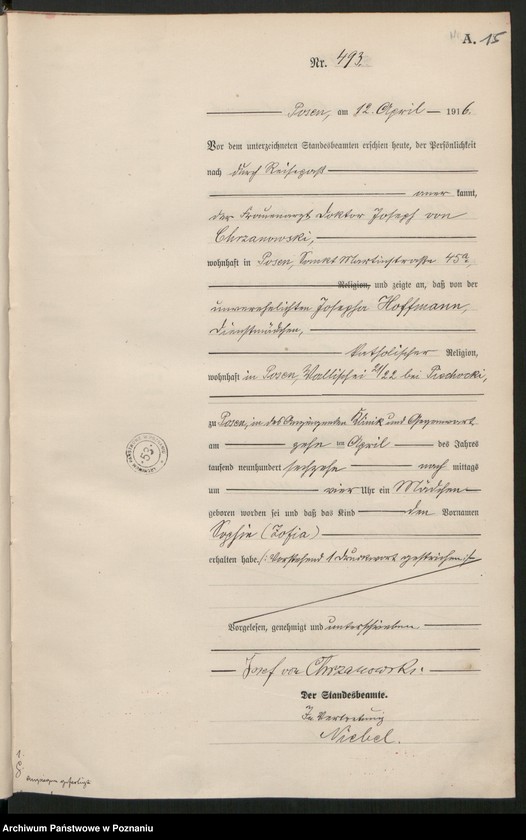 A. 15
Nr. 493.
Posen, am 12. April 1916.
Vor dem unterzeichneten Standesbeamten erschien heute, der Persönlichkeit
nach durch Reisepaß
anerkannt,
der Frauenarzt Doktor Joseph von
Chrzanowski,
wohnhaft in Posen, Sankt Martinstraße 45a,
Religion, und zeigte an, daß von der
unverehelichten Josepha Hoffmann,
Dienstmädchen,
katholischer Religion,
wohnhaft in Posen, Wallischei 21/22 bei Piechocki,
zu Posen, in des Anzeigenden Klinik und Gegenwart
am zehn ten April des Jahres
tausend neunhundert sechzehn nach mittags
um vier Uhr ein Mädchen
geboren worden sei und daß das Kind den Vornamen
Sophie (Zofia)
erhalten habe. /: Vorstehend 1 Druckwort gestrichen :/
Vorgelesen, genehmigt und unterschrieben
Josef von Chrzanowski.
Der Standesbeamte.
In Vertretung
Niebel.
Archiwum Państwowe w Poznaniu